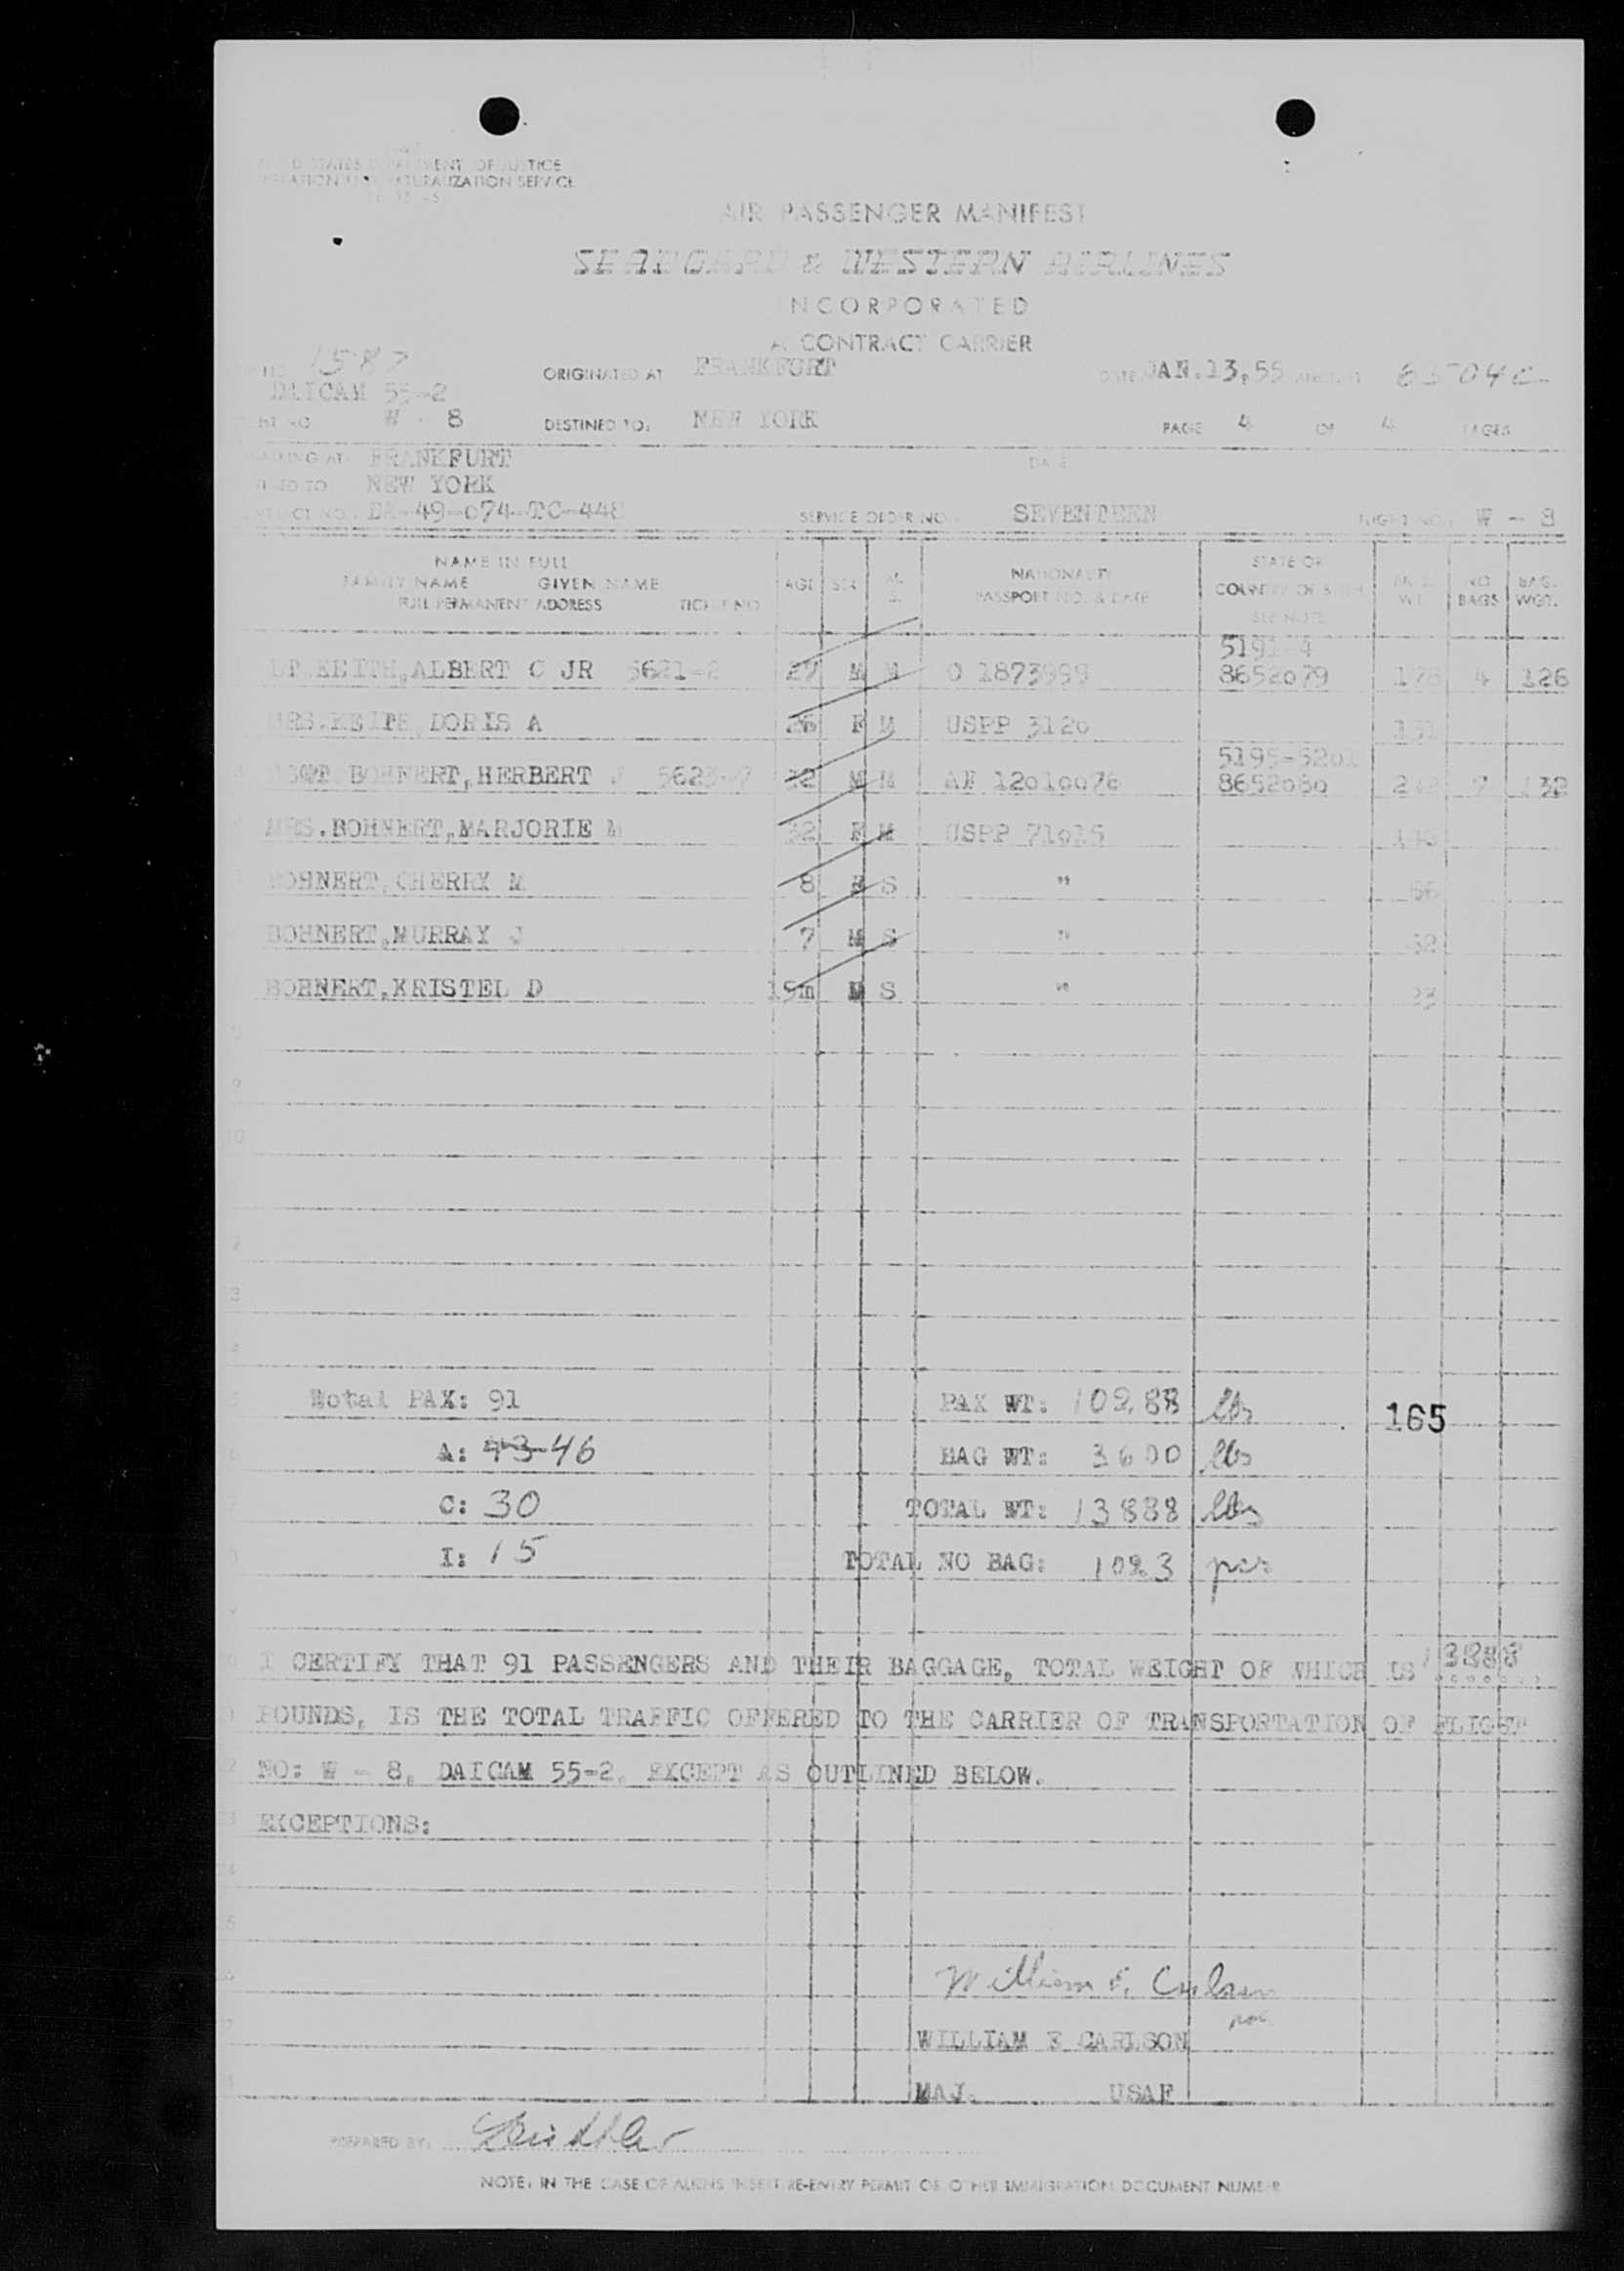 UNITED STATES DEPARTMENT OF JUSTICE
IMMIGRATION AND NATURALIZATION SERVICE
AIR PASSENGER MANIFEST
SEABOARD & WESTERN AIRLINES
INCORPORATED
A CONTRACT CARRIER
1587 ORIGINATED AT FRANKFURT DATE JAN.13,55
DAICAM 55-2
W - 8 DESTINED TO: NEW YORK PAGE 4 OF 4 PAGES
FRANKFURT DATE
NEW YORK
DA-49-074-TC-448 SERVICE ORDER NO. SEVENTEEN FLIGHT NO. W - 8
NAME IN FULL STATE OR
FAMILY NAME GIVEN NAME AGE SEX M S NATIONALITY COUNTRY OF BIRTH NO BAG.
FULL PERMANENT ADDRESS TICKET NO PASSPORT NO. & DATE BAGS WGT.
SEE NOTE
5191-4
LT.KEITH,ALBERT C JR 5621-2 27 M M O 1873999 8652079 178 4 126
MRS.KEITH,DORIS A 26 F M USPP 3120
5195-5201
BOHNERT,HERBERT 32 M M AF 12010076 8652080 7 132
MRS.BOHNERT,MARJORIE M 32 F M USPP 71015
BOHNERT,CHERRY M 8 F S "
BOHNERT,MURRAY J 7 M S "
BOHNERT,KRISTEL D 15m M S "
9
10
2
3
4
Total PAX: 91 PAX WT: 10288 lbs 165
A: 43 46 BAG WT: 3600 lbs
C: 30 TOTAL WT: 13888 lbs
I: 15 TOTAL NO BAG: pcs
I CERTIFY THAT 91 PASSENGERS AND THEIR BAGGAGE, TOTAL WEIGHT OF WHICH IS 13888
POUNDS, IS THE TOTAL TRAFFIC OFFERED TO THE CARRIER OF TRANSPORTATION OF FLIGHT
NO: W - 8, DAICAM 55-2, EXCEPT AS OUTLINED BELOW.
EXCEPTIONS:
William E. Carlson
WILLIAM E CARLSON
MAJ. USAF
PREPARED BY:
NOTE: IN THE CASE OF ALIENS INSERT RE-ENTRY PERMIT OR OTHER IMMIGRATION DOCUMENT NUMBER